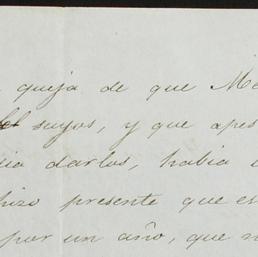 queja de que Me
suyos, y que apes
dia darlos, habia
hizo presente que es
por un año, que n